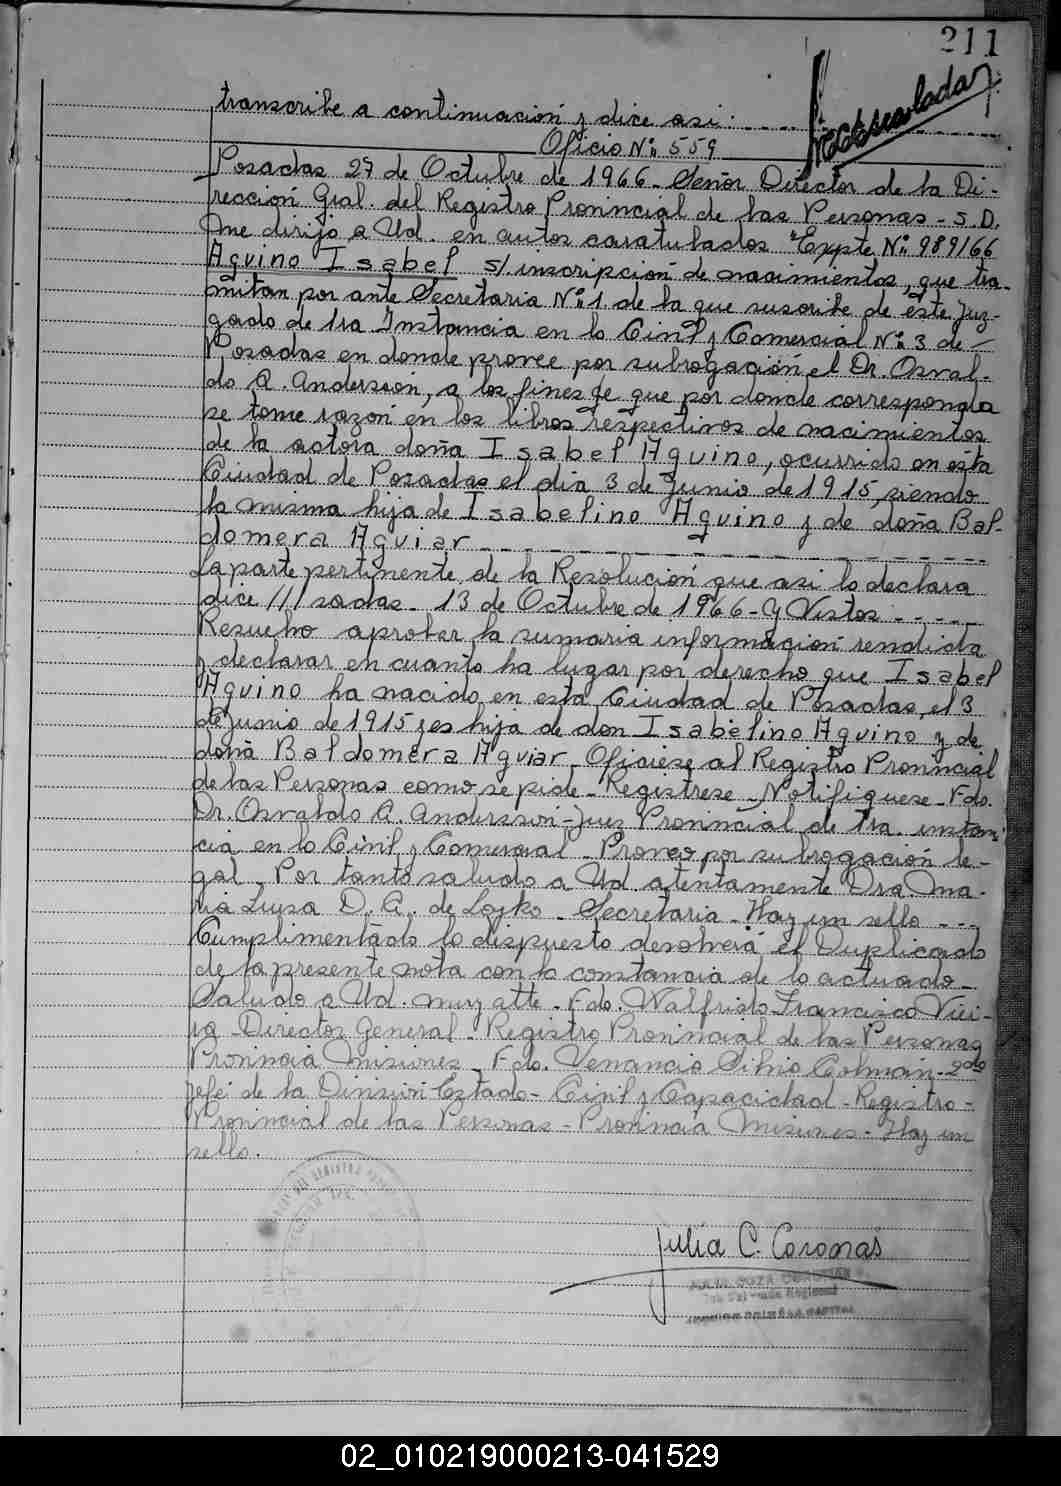 211
transcribe a continuacion y dice asi:
Oficio Nº 559
Posadas 27 de Octubre de 1966 - Señor Director de la Di-
rección Gral. del Registro Provincial de las Personas - S.D.
Me dirijo a Ud. en autos caratulados "Expte Nº 989/66
Aquino Isabel s/inscripcion de nacimientos, que tra-
mitan por ante Secretaria Nº 1. de la que suscribe de este Juz-
gado de 1ra Instancia en lo Civil y Comercial Nº 3 de -
Posadas en donde provee por subrogación el Dr. Osval-
do A. Andersson, a los fines de que por donde corresponda
se tome razon en los libros respectivos de nacimientos
de la actora doña Isabel Aquino, ocurrido en esta
Ciudad de Posadas el dia 3 de Junio de 1915, siendo
la misma hija de Isabelino Aquino y de doña Bal-
domera Aguiar
La parte pertinente de la Resolución que asi lo declara
dice ///sadas - 13 de Octubre de 1966 - Y Vistos
Resuelvo aprobar la sumaria informacion rendida
y declarar en cuanto ha lugar por derecho que Isabel
Aquino ha nacido en esta Ciudad de Posadas, el 3
de Junio de 1915 y es hija de don Isabelino Aquino y de
doña Baldomera Aguiar - Ofíciese al Registro Provincial
de las Personas como se pide - Regístrese - Notifiquese - Fdo.
Dr. Osvaldo A. Andersson - Juez Provincial de 1ra. instan-
cia en lo Civil y Comercial - Proveo por subrogación le-
gal - Por tanto saludo a Ud atentamente Dra. Ma-
ria Luisa D. A. de Lojko - Secretaria - Hay un sello
Cumplimentado lo dispuesto devolverá el Duplicado
de la presente nota con la constancia de lo actuado -
Saludo a Ud. muy atte - Fdo. Walfrido Francisco Viei-
ra - Director General - Registro Provincial de las Personas
Provincia Misiones - Fdo. Venancio Silvio Colman - 2do
Jefe de la Division Estado - Civil y Capacidad - Registro -
Provincial de las Personas - Provincia Misiones - Hay un
sello.
Julia C. Coronas
02_010219000213-041529